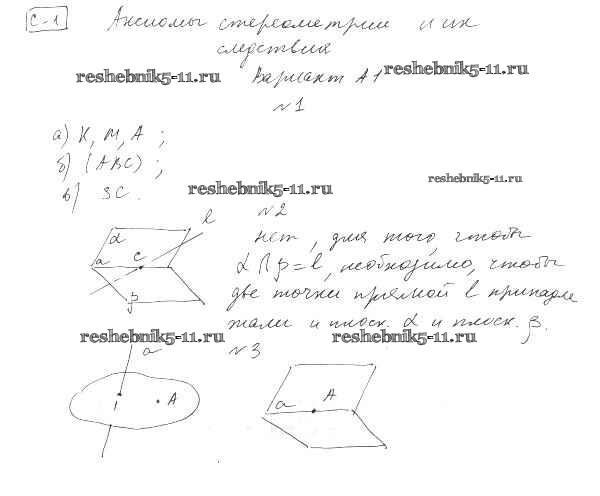 С-1 Аксиомы стереометрии и их
следствия
reshebnik5-11.ru Вариант А1 reshebnik5-11.ru
№1
а) К, М, А ;
б) (АВС) ;
в) SC.
reshebnik5-11.ru
reshebnik5-11.ru
№2
нет, для того, чтобы
α ∩ β = l, необходимо, чтобы
две точки прямой l принадле
жали и плоск. α и плоск. β.
α
a
C
l
β
reshebnik5-11.ru reshebnik5-11.ru
№3
a
A
a
A